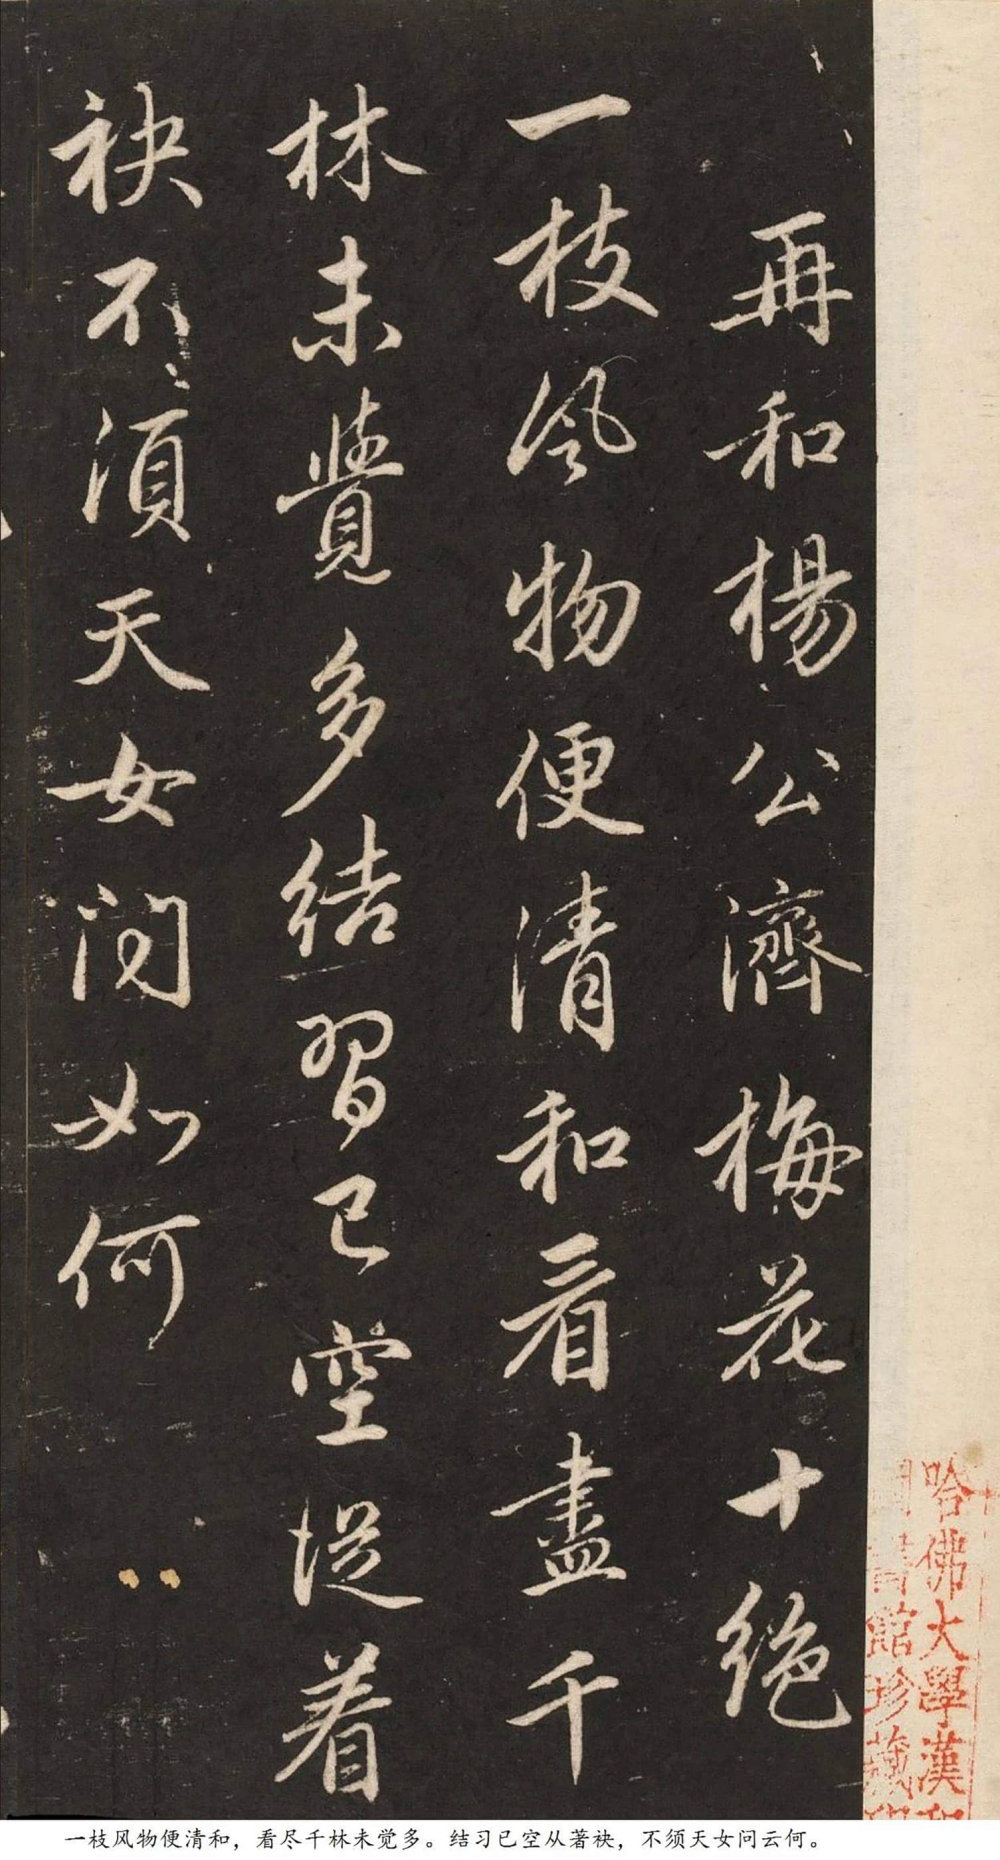 再和楊公濟梅花十絶
一枝風物便清和看盡千
林未覺多結習已空從着
袂不須天女問如何
哈佛大學漢和
圖書館珍藏印
一枝风物便清和，看尽千林未觉多。结习已空从著袂，不须天女问云何。